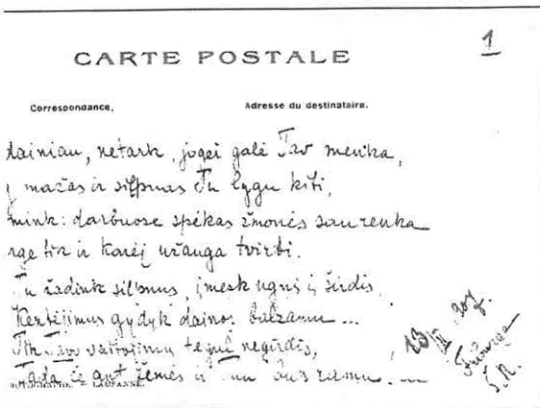 1
CARTE POSTALE
Correspondance. Adresse du destinataire.
dainiau, netark, jogei galė Tav menka,
mažas ir silpnas Tu lygu kiti,
mink: darbuose spėkas žmonės sau renka
ir karėj užauga tvirti.
Tu žadink silpnus, įmesk ugnį į širdis,
Kentėjimus gydyk dainos balzamu ...
Tik Tavo vaitojimų tegul negirdis,
Tada čia ant žemės
13
Š.R.
LAUSANNE